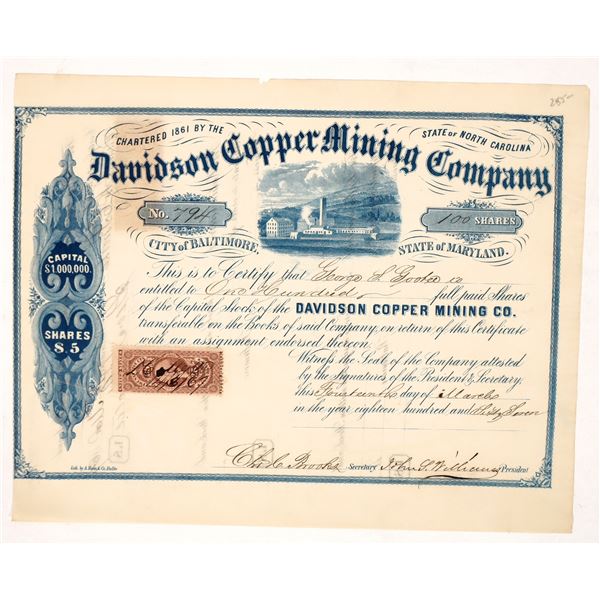 285-
CHARTERED 1861 BY THE STATE OF NORTH CAROLINA
Davidson Copper Mining Company
No. 794 100 SHARES
CITY of BALTIMORE, STATE of MARYLAND.
CAPITAL
$1,000,000.
SHARES
$.5
This is to Certify that George L is
entitled to One Hundred full paid Shares
of the Capital Stock of the DAVIDSON COPPER MINING CO.
transferable on the Books of said Company, on return of this Certificate
with an assignment endorsed thereon.
Witness the Seal of the Company attested
by the Signatures of the President & Secretary;
this Fourteenth day of March
in the year eighteen hundred and Sixty Seven
Chs C Brooks Secretary John S. Williams President
Lith. by A. Hoen & Co. Balto